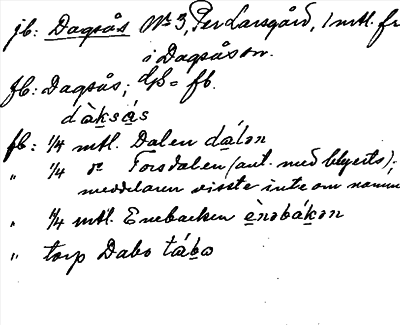 jb: Dagsås No 3, Per Larsgård, 1 mtl. fr
i Dagsås sn.
fb: Dagsås; djb = fb.
dàksás
fb: 1/4 mtl. Dalen dálən
" 1/4 do Torsdalen (ant. med blyerts);
meddelaren visste inte om namn
" 1/4 mtl. Enebacken ènəbákən
" torp Dabo tábo